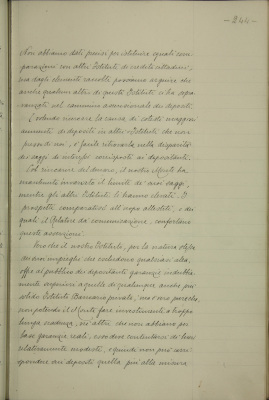 - 244 -
Non abbiamo dati precisi per istituire eguali com-
parazioni con altri Istituti di credito cittadini,
ma dagli elementi raccolti possiamo arguire che
anche qualcuno altri di questi Istituti ci ha sopra-
vanzati nel cammino ascensionale dei depositi.
E volendo ricercare la causa di cotali maggiori
aumenti di depositi in altri Istituti che non
presso di noi, è facile ritrovarla nella disparità
dei saggi di interessi corrisposti ai depositanti.
Col rincaro del denaro, il nostro Istituto ha
mantenuto invariato il limite de' suoi saggi,
mentre gli altri Istituti lo hanno elevato. I
prospetti comparativi all'uopo allestiti, e dei
quali il Relatore dà comunicazione, confortano
queste asserzioni.
Vero che il nostro Istituto, per la natura degli
suoi impieghi che escludono qualsiasi alea,
offre al pubblico dei depositanti garanzie indubbia-
mente superiori a quelle di qualunque anche più
solido Istituto Bancario privato, ma è vero pure che,
non potendo il Monte fare investimenti a troppa
lunga scadenza, nè altri che non abbiano per
base garanzie reali, e dovendo contentarsi di lucro
relativamente modesto, e quindi non può corri-
spondere ai depositi quella più alta misura